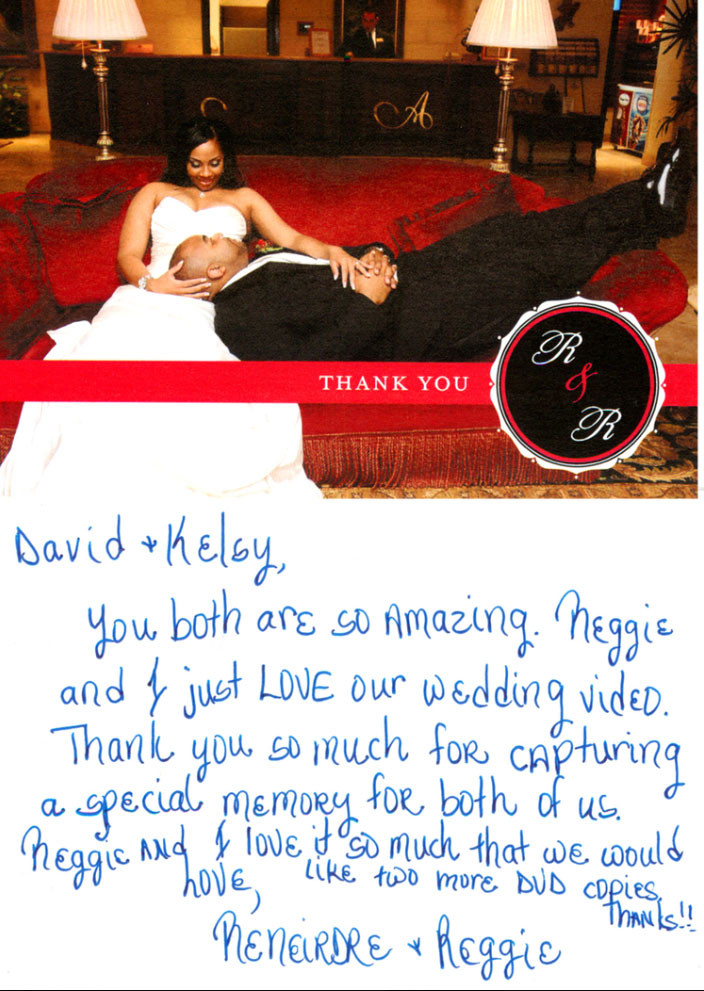 C A
THANK YOU
R
&
R
David + Kelsy,
You both are so Amazing. Reggie
and I just LOVE our wedding video.
Thank you so much for capturing
a special memory for both of us.
Reggie AND I love it so much that we would
like two more DVD copies.
Thanks!!
Love,
Reneirdre + Reggie